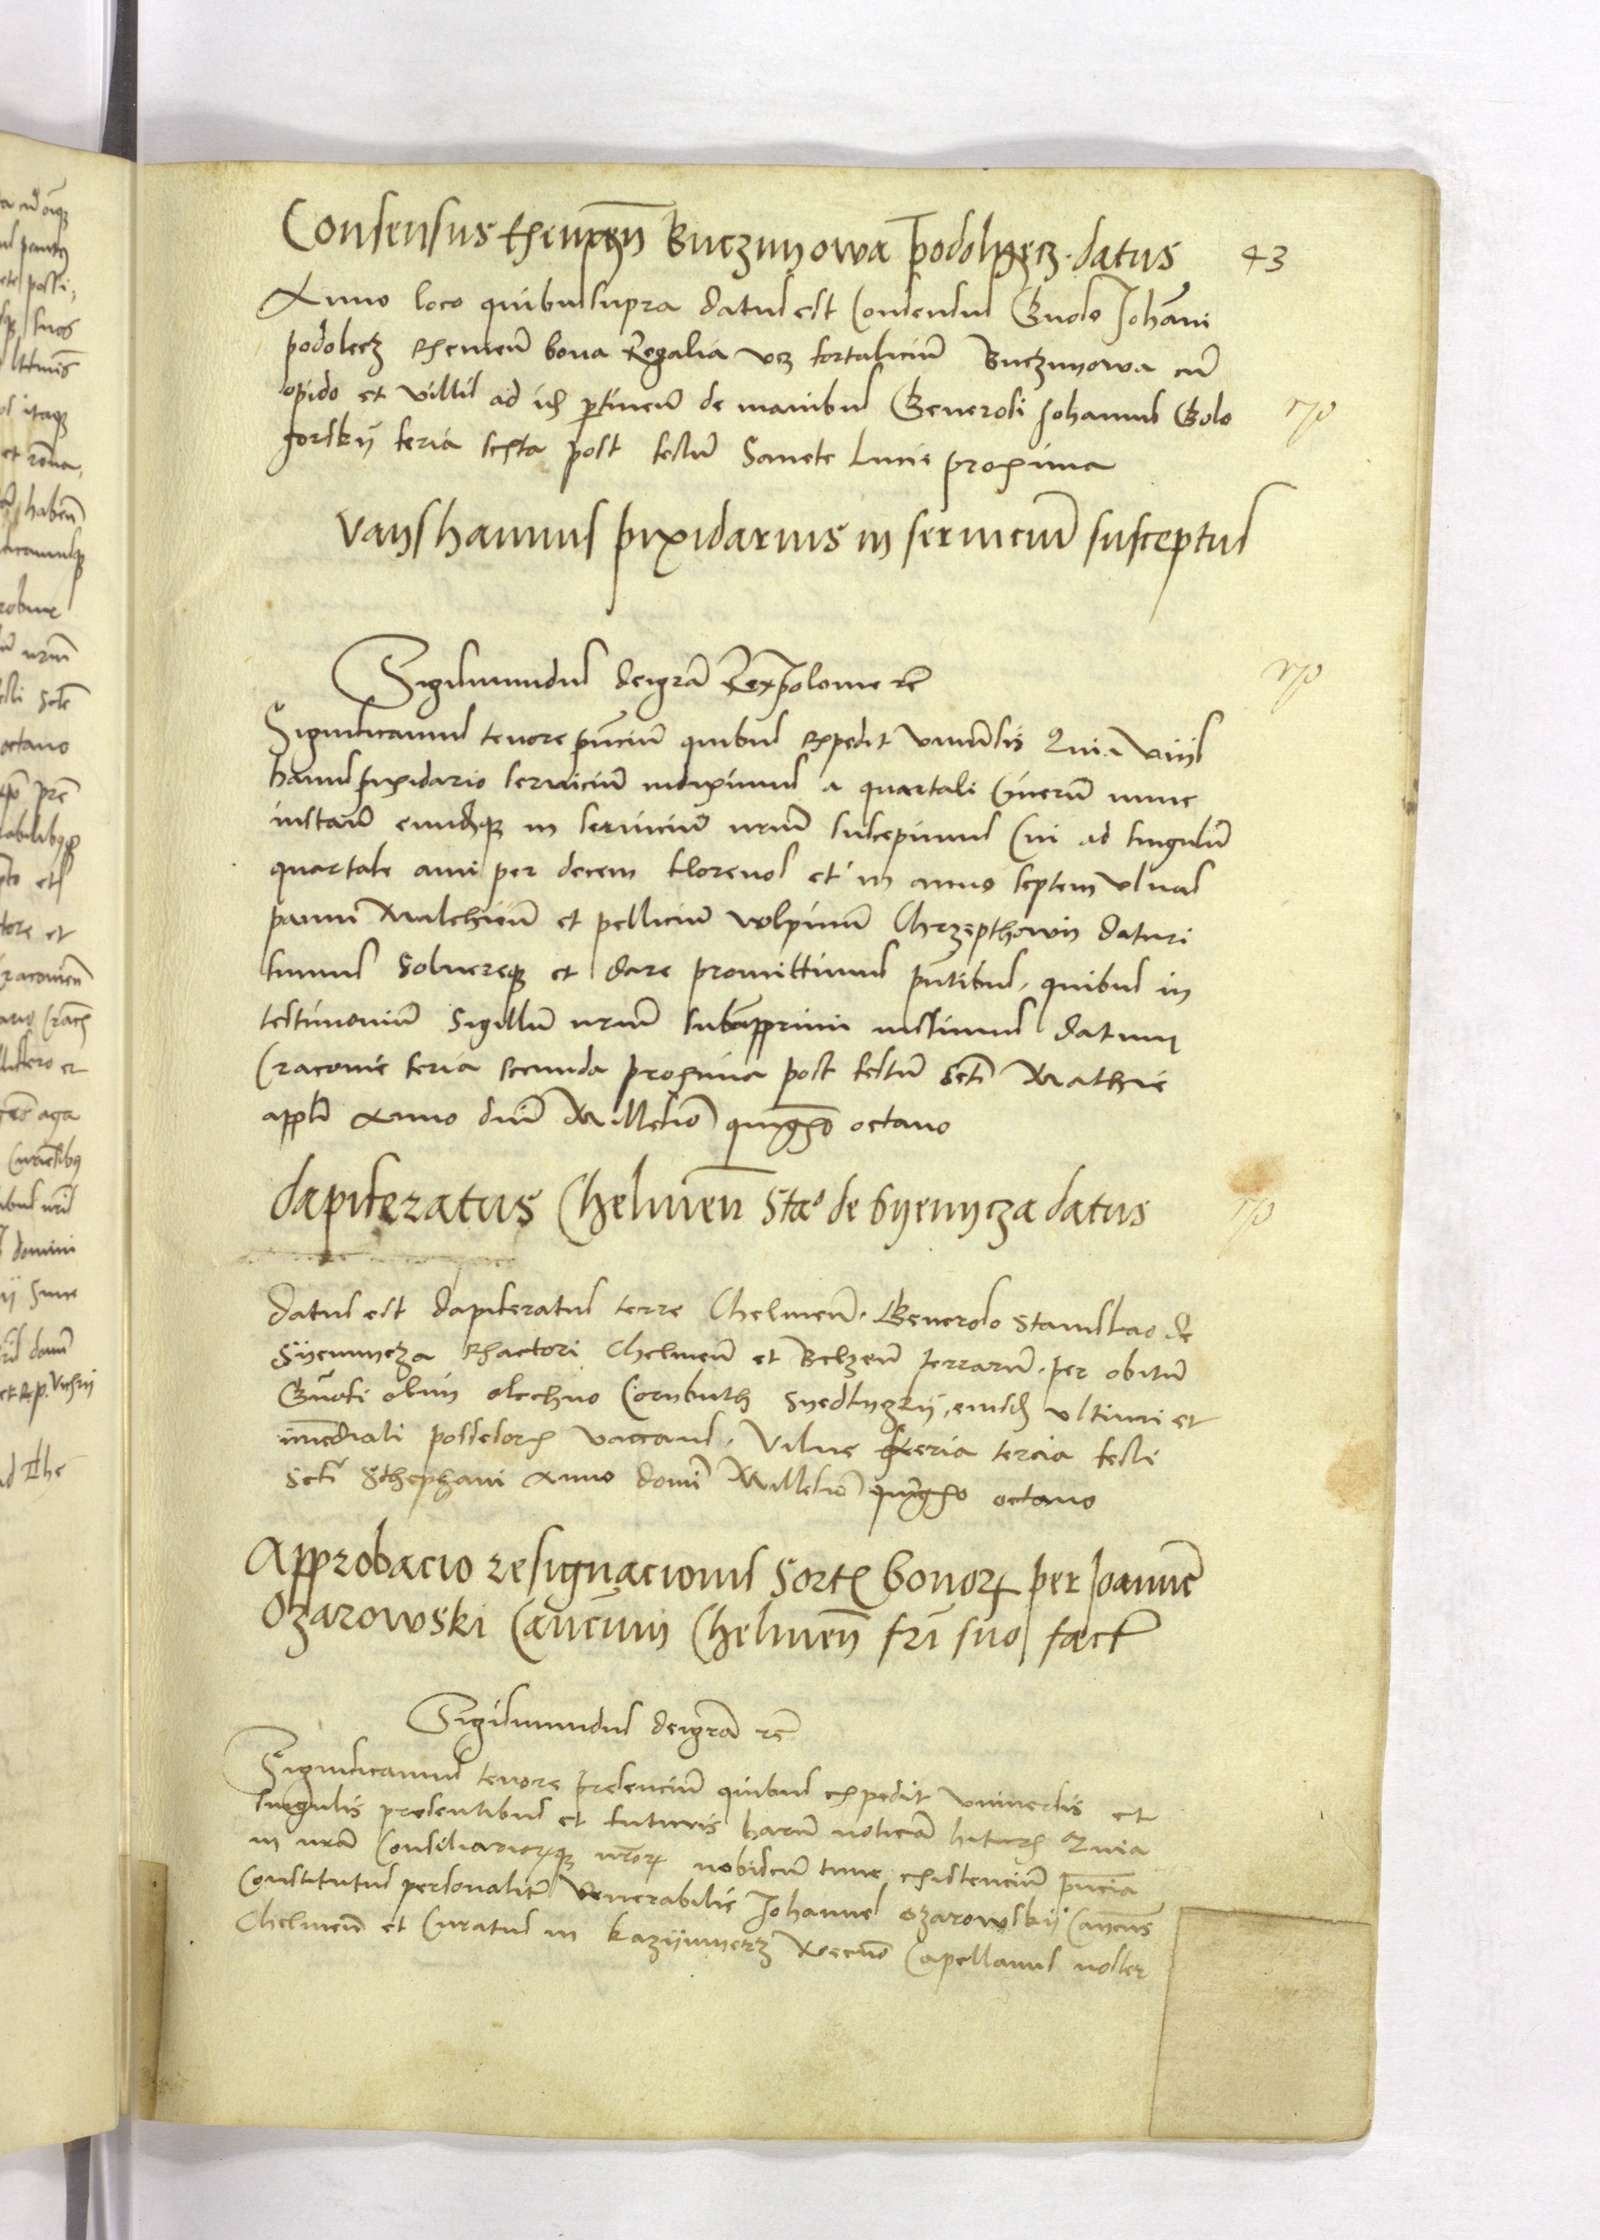 Consensus exemen Buczunowa Podolyecz datus 43
Anno loco quibus supra datus est Consensus Gnoso Johanni
podolecz exemen bona Regalia vcz fortalicium Buczunowa cum
opido et villis ad id ptinen de manibus Generosi Johannis Golo
gorskij feria sexta post festum Sancte Lucie proxima
Vans hannus pixidarius in servicium susceptus
Sigismundus dei gra Rex Polonie rc
Significamus tenore pncium quibus expedit vniuersis Quia Vans
hanus pixidario servicium indiximus a quartali Cinerum nunc
instan eundemque in servicium nrum suscepimus Cui ad singulum
quartale anni per decem florenos et in anno septem vlnas
panni Mulchien et pellicium volpinum Chrzepthowy daturi
sumus Soluereque et dare promittimus pntibus, quibus in
testimonium Sigillum nrum subapprimi iussimus datum
Cracovie feria secunda proxima post festum Scti Mathie
appli Anno dni Millesimo quingmo octavo
dapiferatus Chelmen Stao de Syenycza datus
Datus est dapiferatus terre Chelmen. Generoso Stanislao de
Syennycza exactori Chelmen et Belzen terrarum. per obitum
Gnosi olim olechno Cornbuth Syedlyszky, eiusd vltimi et
immediati possessoris vaccans. Vilne feria tercia festi
Scti Sthephani Anno domi Millesimo quingmo octavo
Approbacio resignacionis Sortis bonorum per Joannem
Ozarowski Canonicum Chelmen fri suo fact
Sigismundus dei gra rc
Significamus tenore presencium quibus expedit vniuersis et
singulis presentibus et futuris harum noticiam habituris Quia
in nram Consiliariorumque nrorum nobiscum tunc existencium pncia
Constitutus personaliter Venerabilis Johannes Ozarowskij Canonicus
Chelmen et Curatus in Kazymyerz Capellanus noster